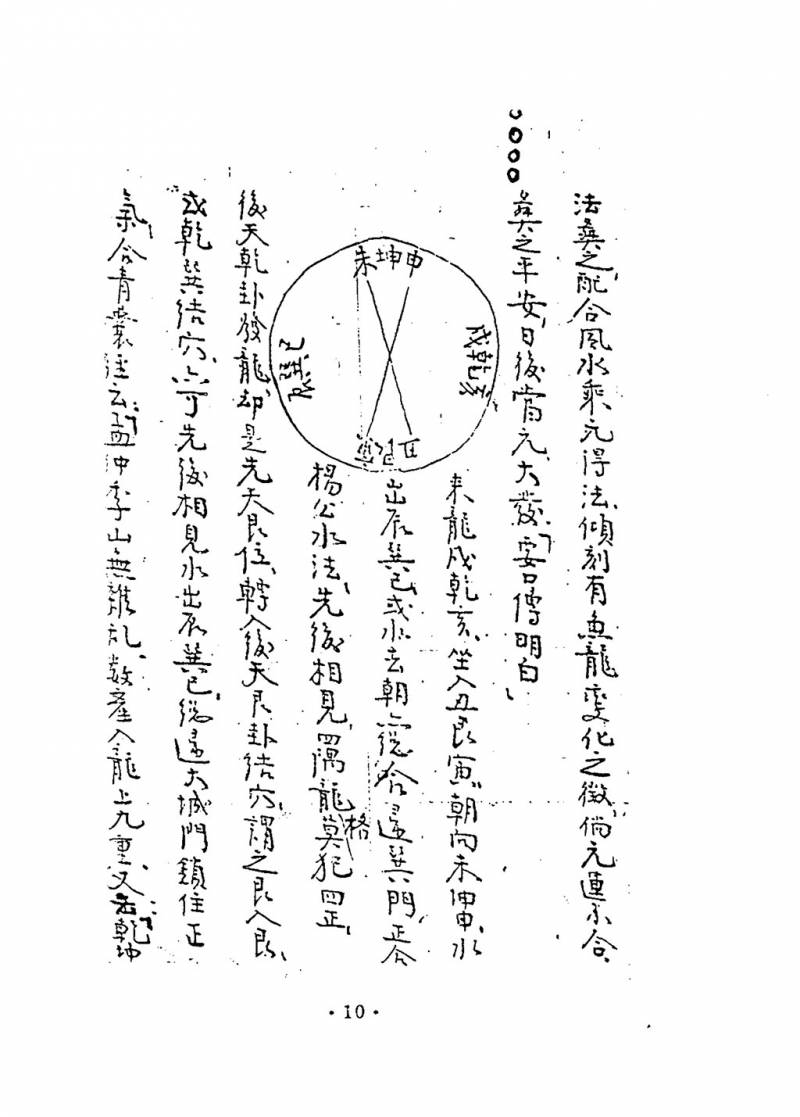 法葬之,配合風水乘元得法,傾刻有魚龍變化之徵,倘元運不合,
葬之平安,日後當元大發,要口傳明白,
未坤申
戌乾亥
辰巽巳
丑艮寅
来龍戌乾亥、坐入丑艮寅,朝向未坤申,水
出辰巽巳,或水去朝,總合是巽門,正合
楊公水法,先後相見,四隅龍格莫犯四正,
後天乾卦發龍,却是先天艮位,轉入後天艮卦結穴,謂之艮入艮,
或乾巽結穴,亦可先後相見水出辰巽巳,總是大城門鎖住正
氣,合青囊經云,孟仲季山無雜乱,数產入龍上九重,又云乾坤
·10·